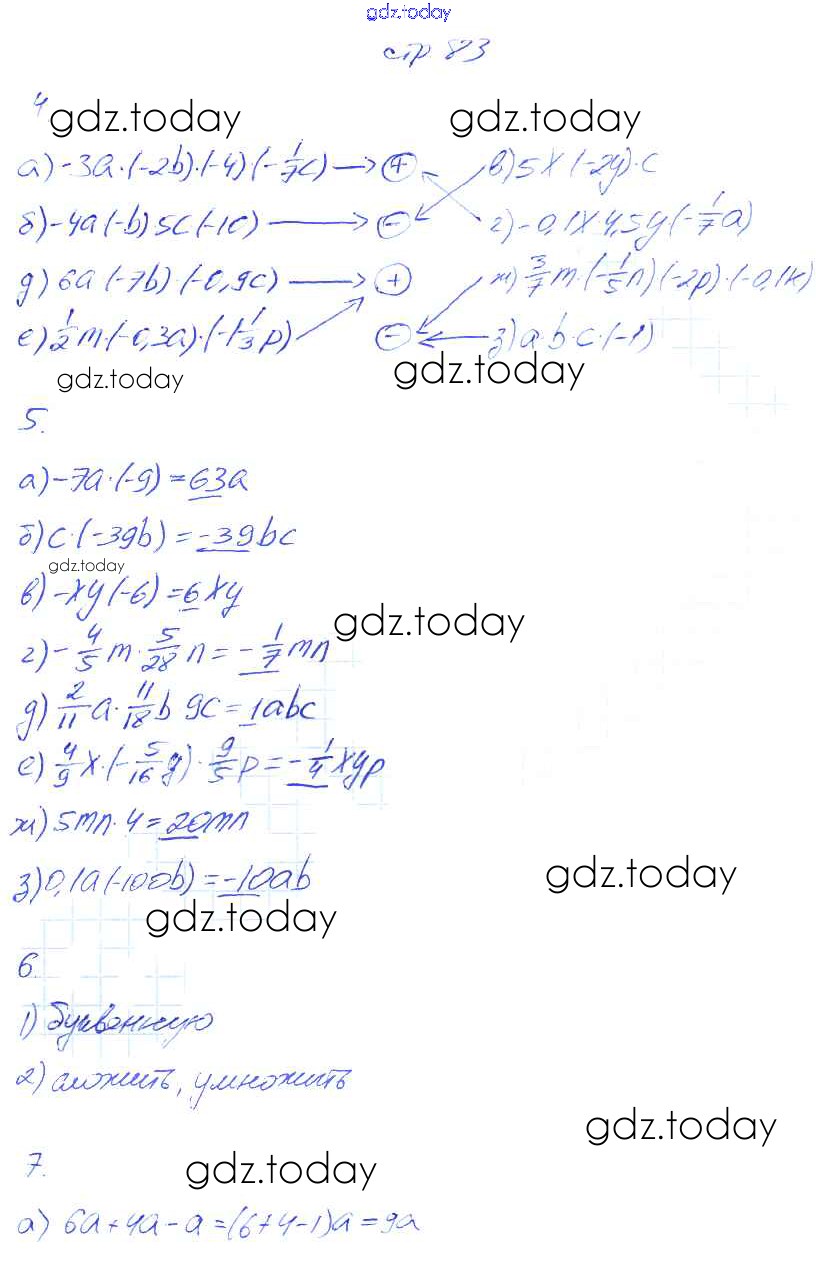 gdz.today
стр 83
4
gdz.today gdz.today
а) -3a·(-2b)·(-4)·(-1/7c) → (+) в) 5x(-2y)·c
б) -4a(-b)5c(-1c) → (-) г) -0,1x4,5y(-1/7a)
д) 6a(-7b)·(-0,9c) → (+) ж) 3/7m·(-1/5n)(-2p)·(-0,1k)
е) 1/2m·(-0,3a)·(-1 1/3p) (-) ← з) a·b·c·(-1)
gdz.today gdz.today
5.
а) -7a·(-9) = 63a
б) c·(-39b) = -39bc
gdz.today
в) -xy(-6) = 6xy
gdz.today
г) -4/5m·5/28n = -1/7mn
д) 2/11a·11/18b 9c = 1abc
е) 4/9x·(-5/16y)·9/5p = -1/4xyp
ж) 5mn·4 = 20mn
з) 0,1a(-100b) = -10ab
gdz.today
gdz.today
6.
1) буквенную
2) сложить, умножить
gdz.today
7.
gdz.today
а) 6a+4a-a=(6+4-1)a=9a